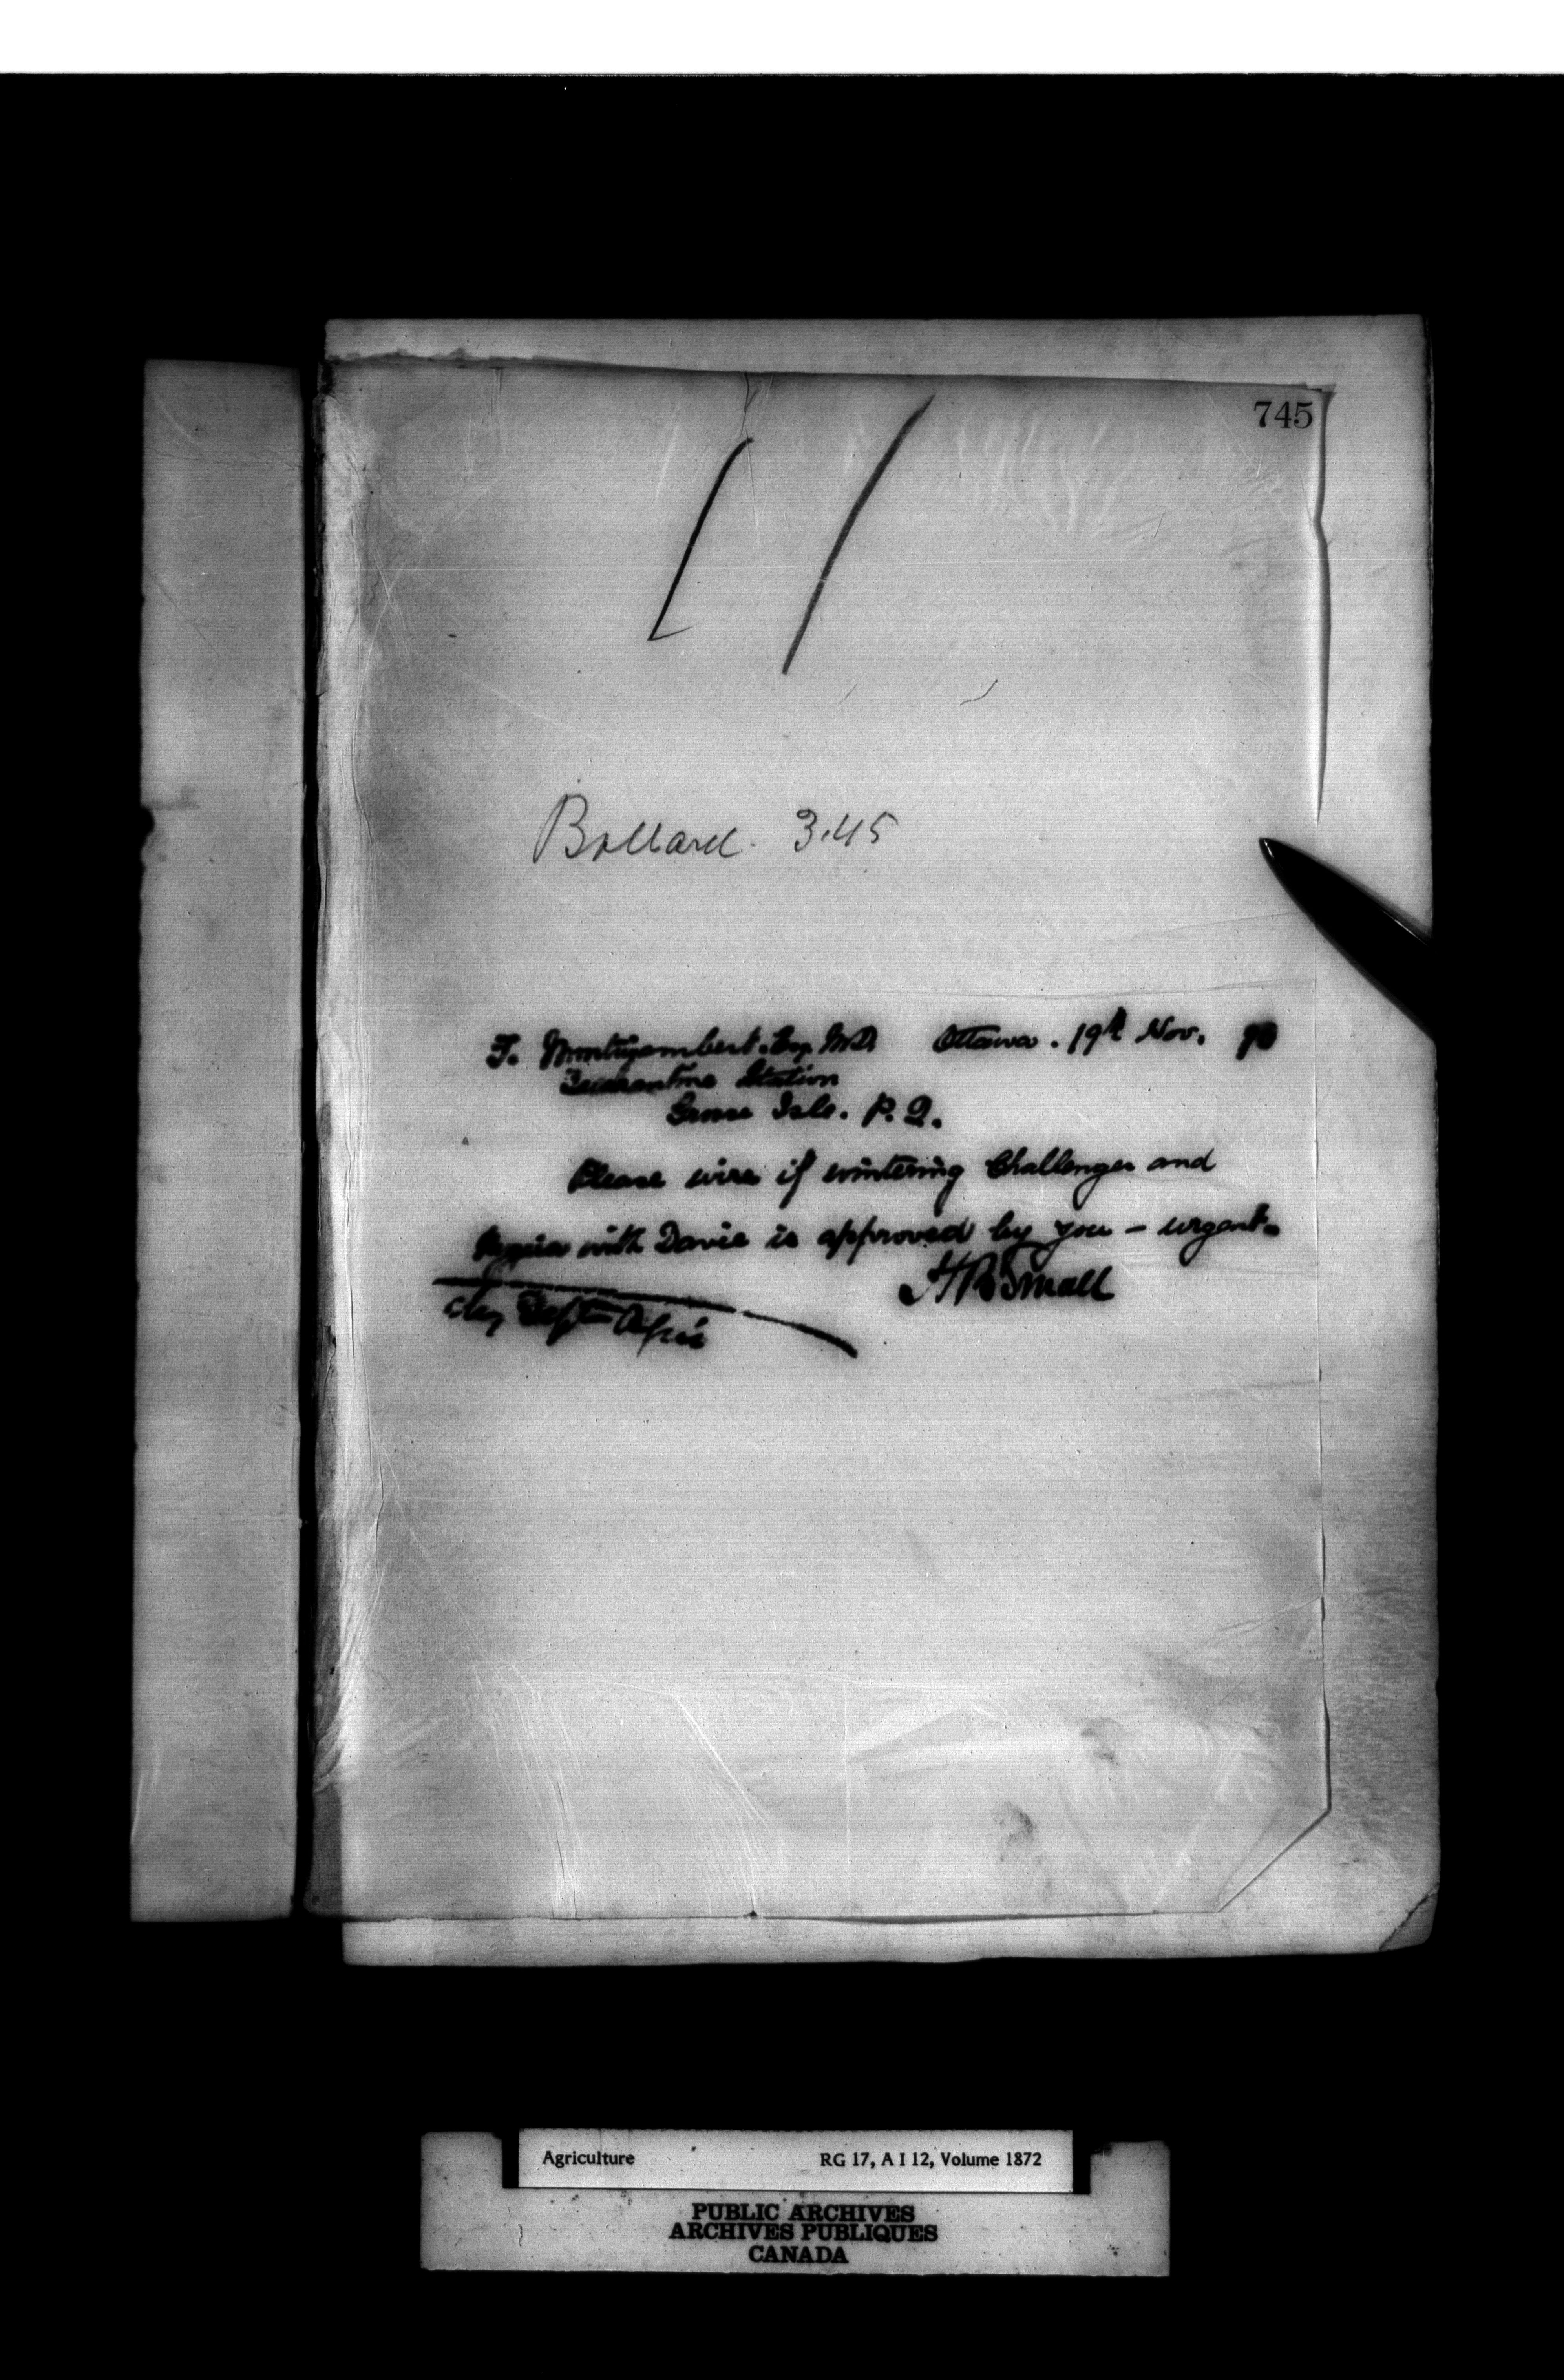 745
Bollard. 3.45
F. Montizambert. Esq. M.D. Ottawa. 19th Nov. 90
Quarantine Station
Grosse Isle. P. Q.
Please wire if wintering Challenger and
with Davie is approved by you - urgent.
H B Small
Agriculture RG 17, A I 12, Volume 1872
PUBLIC ARCHIVES
ARCHIVES PUBLIQUES
CANADA